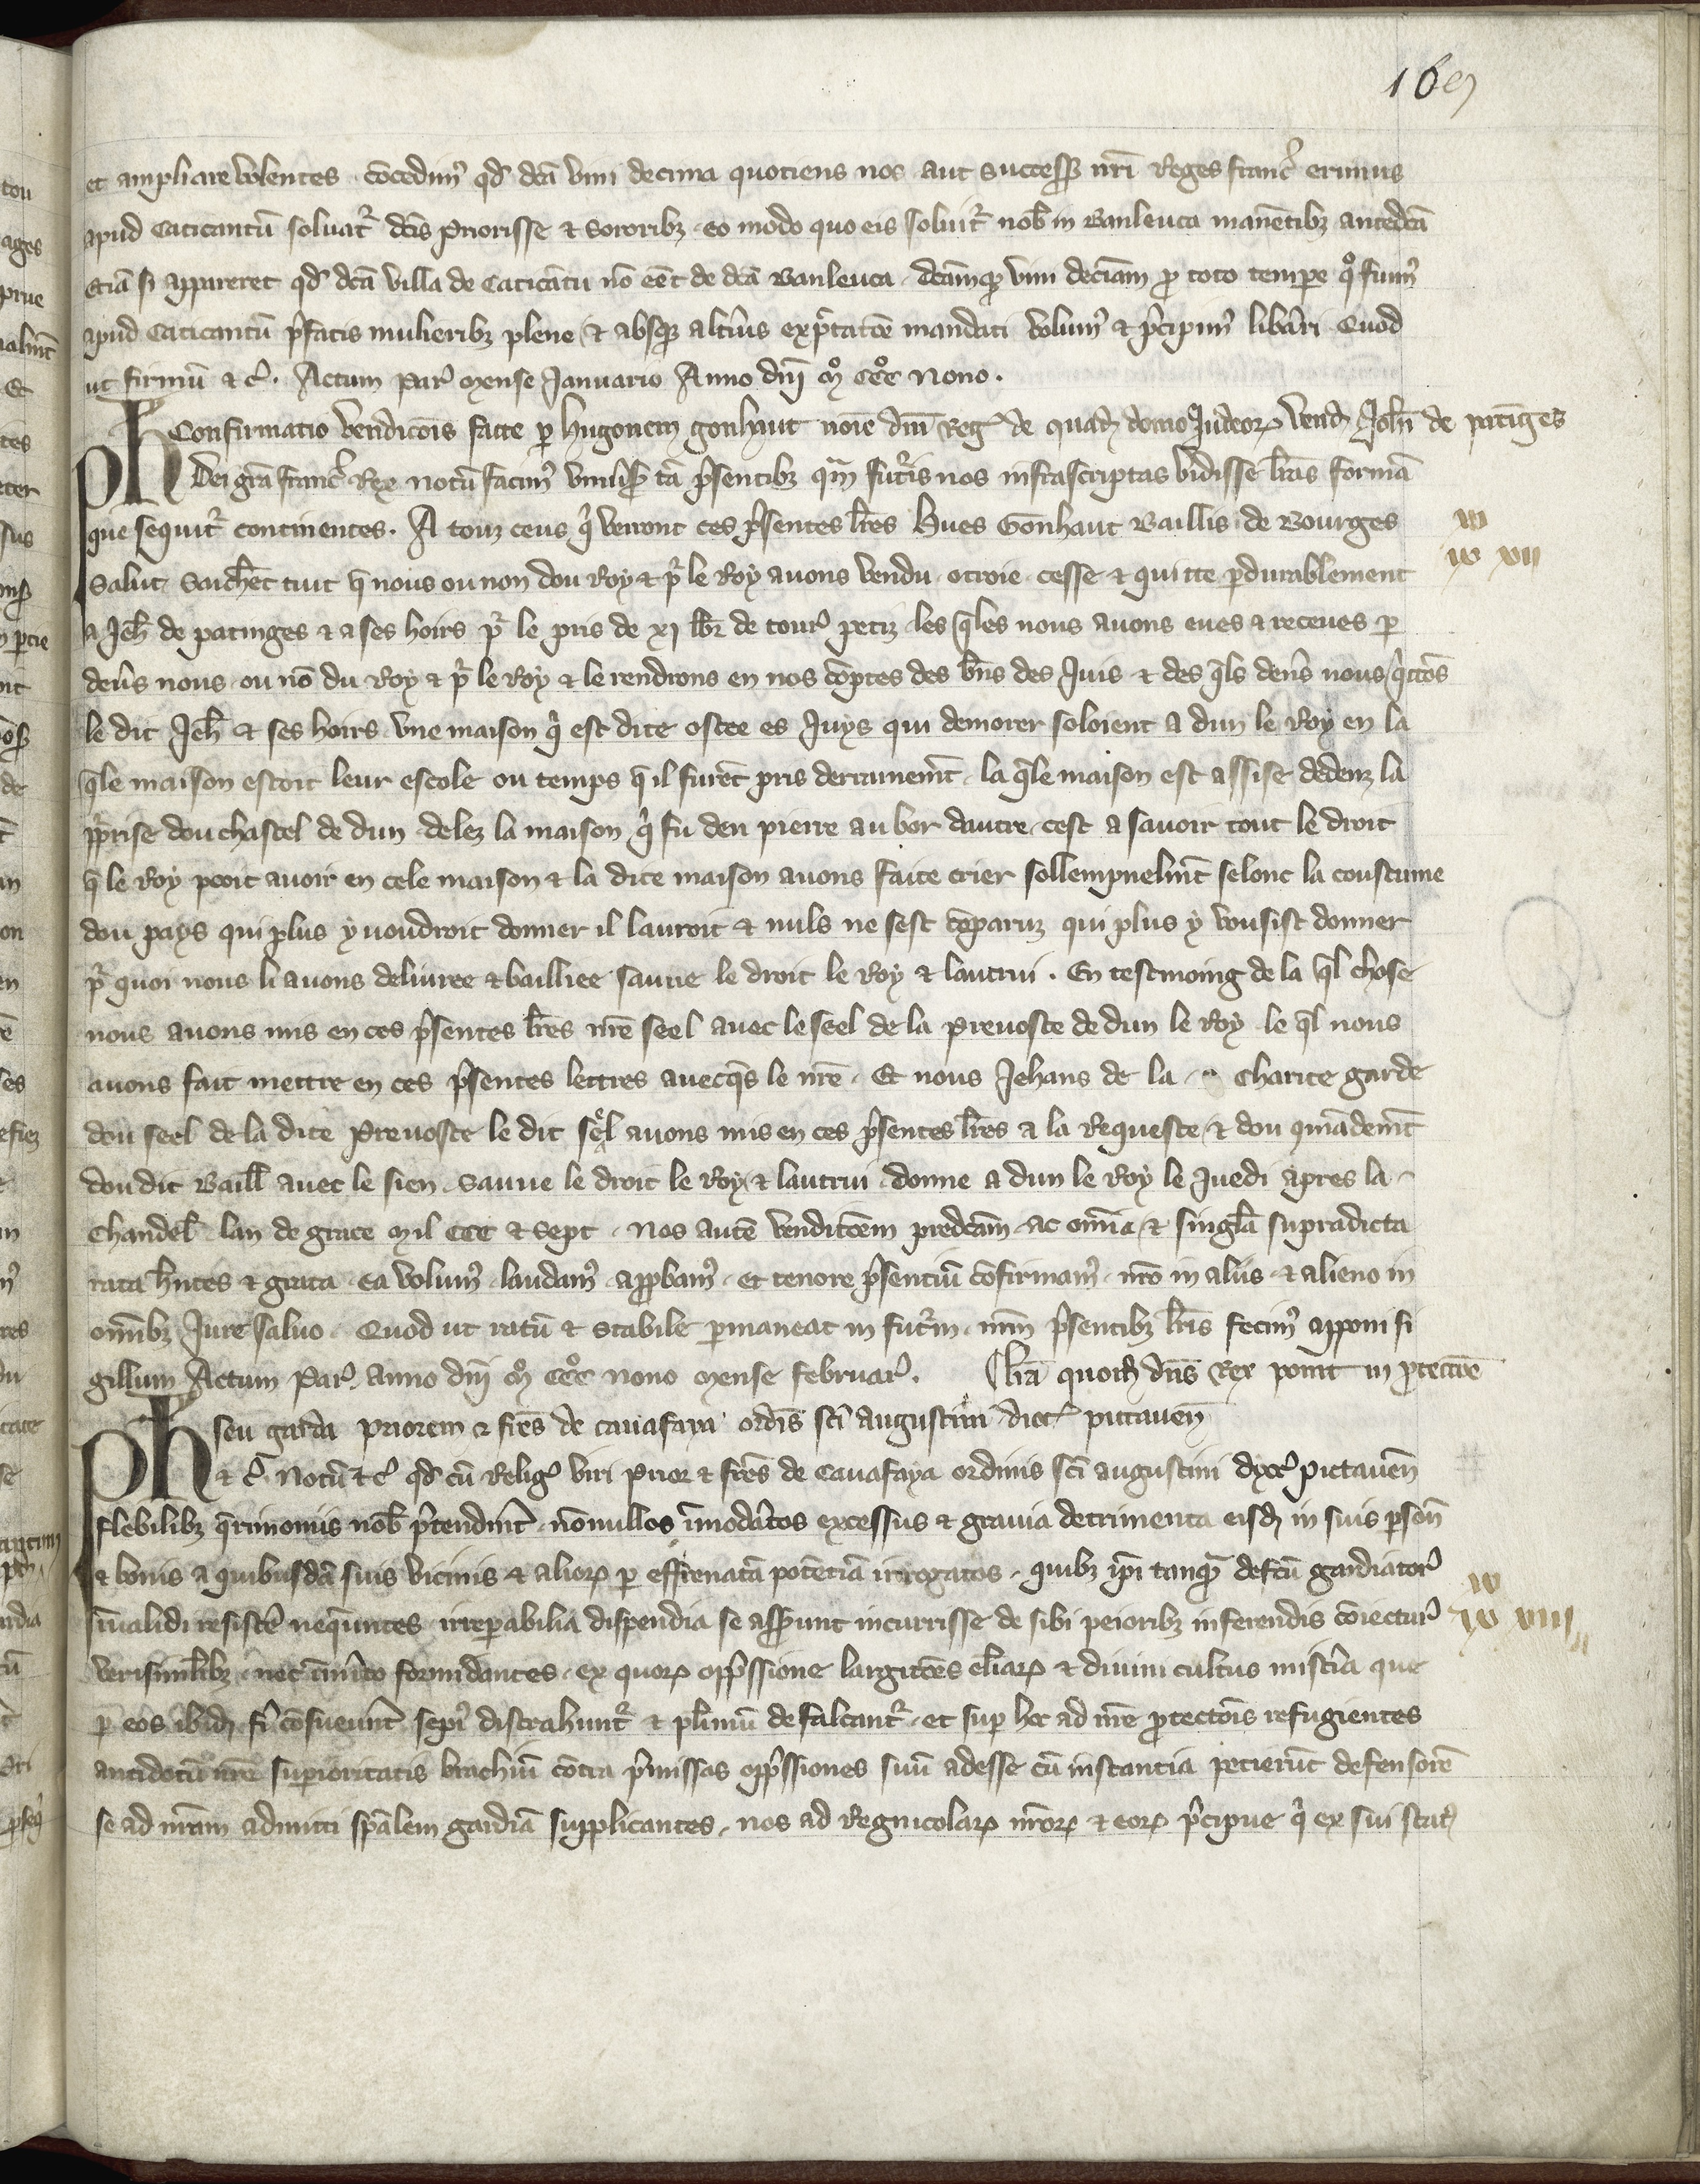 169
et ampliare volentes . cōcedimꝰ qd̄ dc̄a vini decima quotiens nos aut success̄ nr̄i Reges franc̄ erimus
apud Caticantū soluat̄ dc̄is Priorisse ⁊ Sororibꝫ . eo modo quo eis soluit̄ nob̄ in Banleuca manētibꝫ antedc̄a
Etiā si appareret qd̄ dc̄a villa de Caticātu nō eēt de dc̄a Banleuca . dc̄amqꝫ vini deciam̄ ꝓ toto tempe qͦ fuimꝰ
apud Caticantū p̄fatis mulieribꝫ plene ⁊ absqꝫ altiꝰ exp̄tatōe mandati volumꝰ ⁊ p̄cipimꝰ lib̄ari Quod
ut firmū ⁊ c̄ . Actum Par̄ Mense Januario Anno dn̄i Mͦ CCCͦ Nono .
Confirmatio venditiōis facte ꝑ hugonem gonhaut noīe dn̄i Reḡ de quad̄ domo Judeoꝝ vend̄ Joh̄i de patīges
Ph Dei grā franc̄ Rex notū facimꝰ vniūsis tā p̄sentibꝫ qm̄ fut̄is nos infrascriptas vidisse lr̄as formā
que sequit̄ continentes . A touz ceus q̄ verront ces p̄sentes lr̄es Hues Gonhaut Baillis de Bourges
Salut . Sachēt tuit q̄ nous ou non dou Roy ⁊ pͬ le Roy auons vendu . otroie . cesse ⁊ quitte ꝑdurablement
a Jeh̄ de patinges ⁊ a ses hoirs pͬ le pris de xj lb̄r de tour̄ petiz . les q̄les nous auons eues ⁊ receues ꝑ
deūs nous . ou nō du Roy ⁊ pͬ le Roy ⁊ le rendrons en nos cōptes des bn̄s des Juis . ⁊ des q̄ls den̄s nous q̄ttōs
le dit Jeh̄ ⁊ ses hoirs . vne maison q̄ est dite ostee es Juys qui demorer soloient a dun le Roy en la
q̄le maison estoit leur escole ou temps q̄ il furēt pris derrainemt̄ . la q̄le maison est assise dedenz la
pp̄rise dou chastel de dun . delez la maison q̄ fu den pierre au bor dautre . cest a sauoir tout le droit
q̄ le Roy peoit auoir en cele maison ⁊ la dite maison auons faite crier sollempnelmt̄ selonc la coustume
dou pays qui plus y uoudroit donner il lauroit ⁊ nuls ne sest cōparuz qui plus y vousist donner
pͬ quoi nous li auons deliuree ⁊ bailliee saune le droit le Roy ⁊ lautrui . En tesmoing de la q̄l chose
nous auons mis en ces p̄sentes lr̄es nr̄e seel auec le seel de la Preuoste de dun le Roy . le q̄l nous
auons fait mettre en ces p̄sentes lettres auecq̄s le nr̄e . Et nous Jehans de la . Charite garde
dou seel de la dite Preuoste le dit seel auons mis en ces p̄sentes lr̄es a la Requeste ⁊ dou qmādemt̄
dou dit Baill̄ auec le sien . Saune le droit le Roy ⁊ lautrui . donne a dun le Roy le Juedi apres la
Chandel̄ . lan de grace Mil CCC ⁊ sept . Nos autē venditōem predc̄am . ac om̄ia ⁊ singl̄a supradicta
rata hn̄tes ⁊ grata . ea volumꝰ . laudamꝰ . apꝓbamꝰ . et tenore p̄sentiū cōfirmamꝰ . nr̄o in aliis . ⁊ alieno in
om̄ibꝫ Jure saluo . Quod ut ratū ⁊ Stabile ꝑmaneat in fut̄m . nr̄m p̄sentibꝫ lr̄is fecimꝰ apponi si
gillum Actum Par̄ . anno dn̄i Mͦ CCCͦ nono mense februar̄ . Lr̄a quoꝝ dn̄s Rex ponit in ꝓtectōe
seu garda Priorem ⁊ fr̄es de cauafaya ordīs sc̄i augustini dioc̄ pictauen̄
Ph ⁊ c̄ . Notū ⁊ c̄ qd̄ cū Reliḡ viri Prior ⁊ fr̄es de Cauafaya ordinis sc̄i augustini dyoc̄ pictauen̄
flebilibꝫ q̄rimoniis nob̄ p̄tendīnt . nōnullos īmodātos excessus ⁊ grauia detrimenta eisd̄ in suis ꝑson̄
⁊ bonis a quibusdā suis vicinis ⁊ alioꝝ ꝑ effrenatā potētiā irrogatos . quibꝫ ip̄i tanqꝫ defc̄u gardiator̄
īualidi resistē neq̄untes . irreꝑabilia dispendia se assꝑunt incurrisse de sibi peioribꝫ inferendis cōiectur̄
verisimil̄ibꝫ . nec īmīto formidantes . ex quoꝝ opp̄ssione largitōes el̄iaꝝ ⁊ diuini cultus mist̄ia que
ꝑ eos ibid̄ fi cōsueuīnt sepiꝰ distrahunt̄ ⁊ pl̄imū defalcant̄ . et sup hec ad nr̄e ꝓtectōis refugientes
antidotū nr̄e superioritatis brachiū cōtra p̄missas opp̄ssiones suū adesse cū instantia petierūt defensorē
se ad nr̄am admitti spālem gardiā supplicantes . nos ad Regnicolaꝝ nr̄oꝝ ⁊ eoꝝ p̄cipue q̄ ex sui stat̄